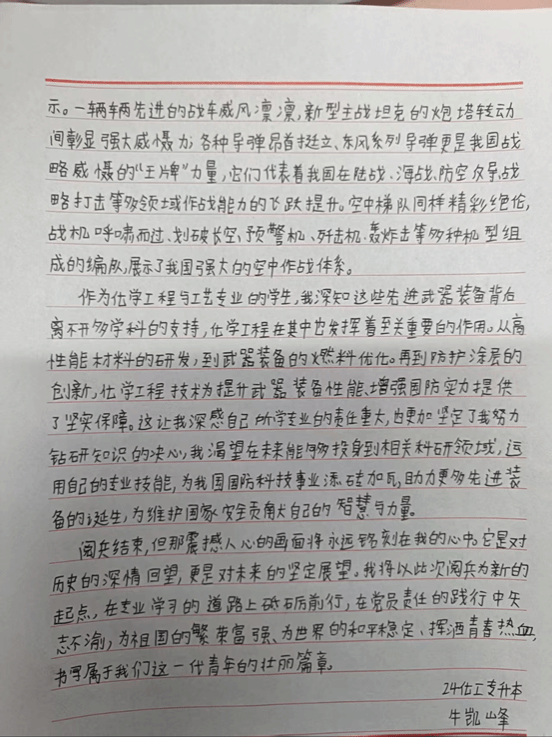 示。一辆辆先进的战车威风凛凛,新型主战坦克的炮塔转动
间彰显强大威慑力;各种导弹昂首挺立、东风系列导弹更是我国战
略威慑的“王牌”力量,它们代表着我国在陆战、海战、防空反导、战
略打击等多领域作战能力的飞跃提升。空中梯队同样精彩绝伦,
战机呼啸而过、划破长空、预警机、歼击机、轰炸击等多种机型组
成的编队,展示了我国强大的空中作战体系。
作为化学工程与工艺专业的学生,我深知这些先进武器装备背后
离不开多学科的支持,化学工程在其中也发挥着至关重要的作用。从高
性能材料的研发,到武器装备的燃料优化。再到防护涂层的
创新,化学工程技术为提升武器装备性能、增强国防实力提供
了坚实保障。这让我深感自己所学专业的责任重大,也更加坚定了我努力
钻研知识的决心,我渴望在未来能够投身到相关科研领域,运
用自己的专业技能,为我国国防科技事业添砖加瓦,助力更多先进装
备的诞生,为维护国家安全贡献自己的智慧与力量。
阅兵结束,但那震撼人心的画面将永远铭刻在我的心中。它是对
历史的深情回望,更是对未来的坚定展望。我将以此次阅兵为新的
起点,在专业学习的道路上砥砺前行,在党员责任的践行中矢
志不渝,为祖国的繁荣富强、为世界的和平稳定、挥洒青春热血,
书写属于我们这一代青年的壮丽篇章。
24化工专升本
牛凯峰